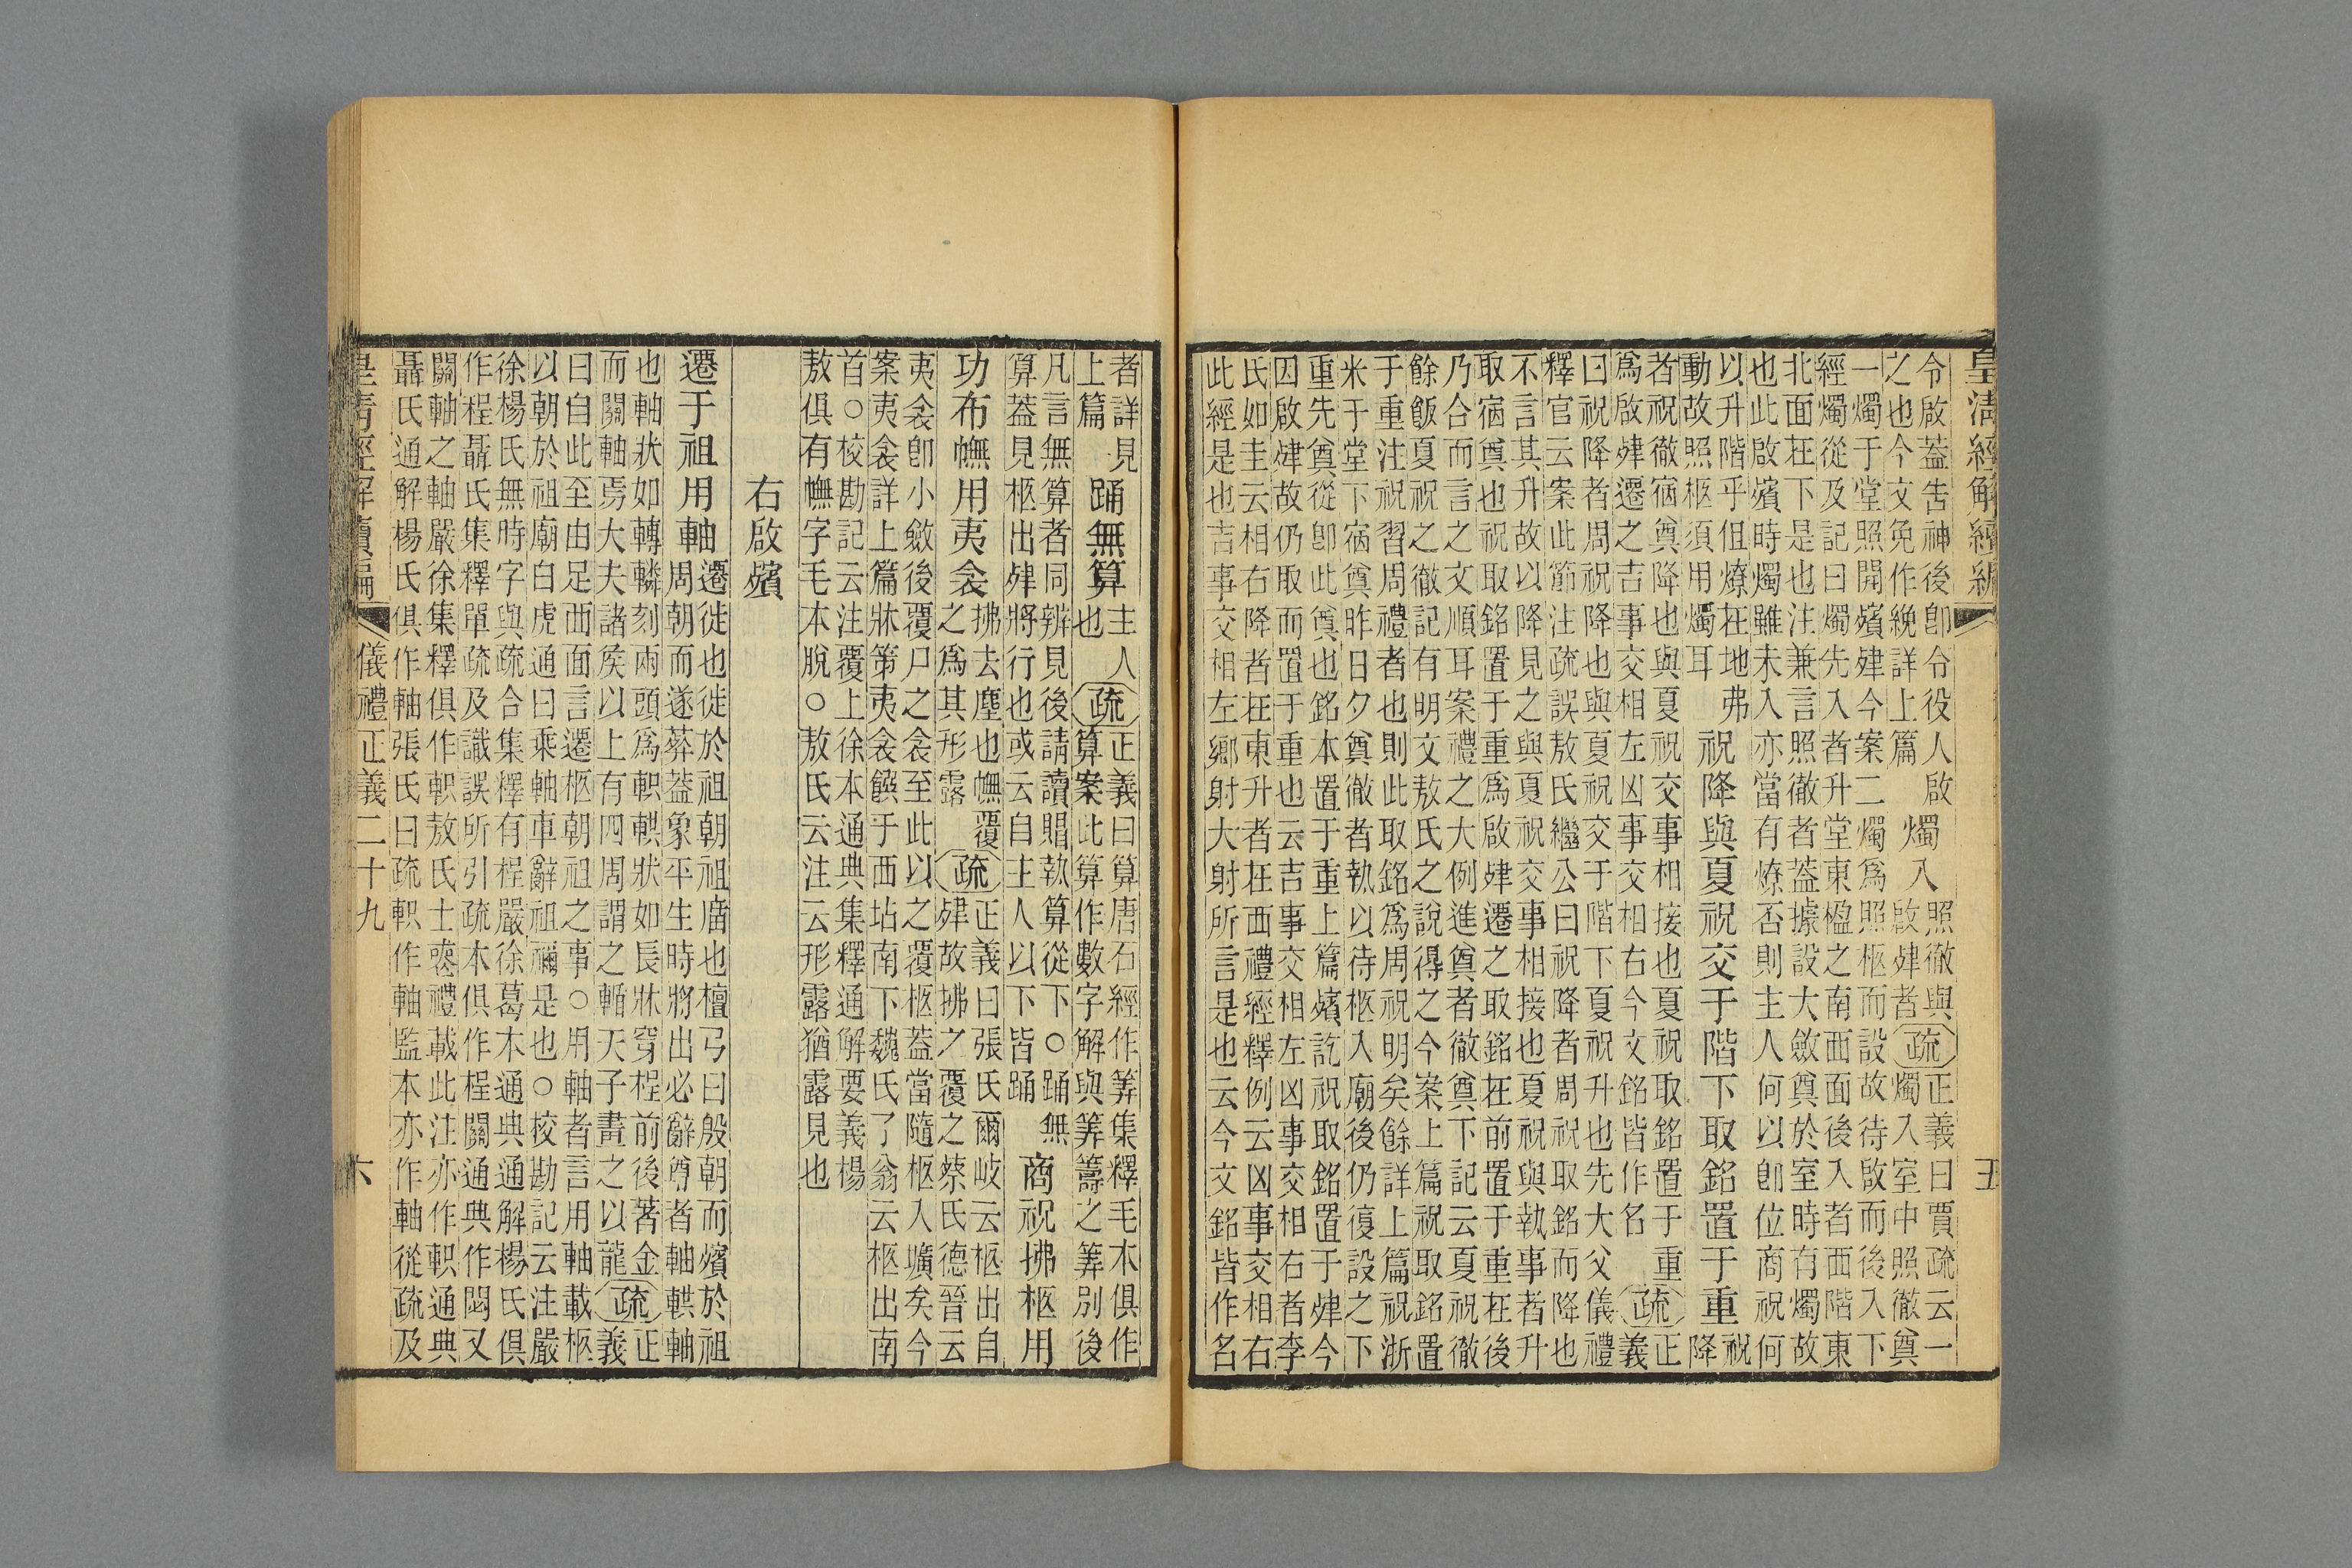 皇淸經解續編
五
令啟蓋告神後卽令役人啟
之也今文免作絻詳上篇
燭入
照徹與
啟肂者
疏
正義曰賈疏云一
燭入室中照徹奠
一燭于堂照開殯肂今案二燭爲照柩而設故待啟而後入下
經燭從及記曰燭先入者升堂東楹之南西面後入者西階東
北面在下是也注兼言照徹者蓋據設大斂奠於室時有燭故
也此啟殯時燭雖未入亦當有燎否則主人何以卽位商祝何
以升階乎但燎在地弗
動故照柩須用燭耳
祝降與夏祝交于階下取銘置于重
祝
降
者祝徹宿奠降也與夏祝交事相接也夏祝取銘置于重
爲啟肂遷之吉事交相左凶事交相右今文銘皆作名
疏
正
義
曰祝降者周祝降也與夏祝交于階下夏祝升也先大父儀禮
釋官云案此節注疏誤敖氏繼公曰祝降者周祝取銘而降也
不言其升故以降見之與夏祝交事相接也夏祝與執事者升
取宿奠也祝取銘置于重爲啟肂遷之取銘在前置于重在後
乃合而言之文順耳案禮之大例進奠者徹奠下記云夏祝徹
餘飯夏祝之徹記有明文敖氏之說得之今案上篇祝取銘置
于重注祝習周禮者也則此取銘爲周祝明矣餘詳上篇祝淅
米于堂下宿奠昨日夕奠徹者執以待柩入廟後仍復設之下
重先奠從卽此奠也銘本置于重上篇殯訖祝取銘置于肂今
因啟肂故仍取而置于重也云吉事交相左凶事交相右者李
氏如圭云相右降者在東升者在西禮經釋例云凶事交相右
此經是也吉事交相左鄉射大射所言是也云今文銘皆作名
者詳見
上篇
踊無算
主人
也
疏
正義曰算唐石經作筭集釋毛本俱作
算案此算作數字解與筭籌之筭別後
凡言無算者同辨見後請讀賵執算從下○踊無
算蓋見柩出肂將行也或云自主人以下皆踊
商祝拂柩用
功布幠用夷衾
拂去塵也幠覆
之爲其形露
疏
正義曰張氏爾岐云柩出自
肂故拂之覆之蔡氏德晉云
夷衾卽小斂後覆尸之衾至此以之覆柩蓋當隨柩入壙矣今
案夷衾詳上篇牀第夷衾饌于西坫南下魏氏了翁云柩出南
首○校勘記云注覆上徐本通典集釋通解要義楊
敖俱有幠字毛本脫○敖氏云注云形露猶露見也
右啟殯
遷于祖用軸
遷徙也徙於祖朝祖廟也檀弓曰殷朝而殯於祖
周朝而遂葬蓋象平生時將出必辭尊者軸輁軸
也軸狀如轉轔刻兩頭爲軹輁狀如長牀穿桯前後著金
而關軸焉大夫諸侯以上有四周謂之輴天子畫之以龍
疏
正
義
曰自此至由足西面言遷柩朝祖之事○用軸者言用軸載柩
以朝於祖廟白虎通曰乘軸車辭祖禰是也○校勘記云注嚴
徐楊氏無時字與疏合集釋有桯嚴徐葛本通典通解楊氏俱
作程聶氏集釋單疏及識誤所引疏本俱作桯關通典作閟又
關軸之軸嚴徐集釋俱作軹敖氏士䘮禮載此注亦作軹通典
聶氏通解楊氏俱作軸張氏曰疏軹作軸監本亦作軸從疏及
皇淸經解續編
儀禮正義二十九
六